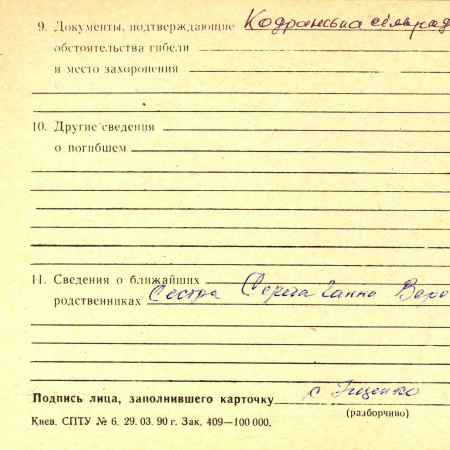 9. Документы, подтверждающие Кодранська
обстоятельства гибели
и место захоронения
10. Другие сведения
о погибшем
11. Сведения о ближайших
родственниках Сестра Ганна
Подпись лица, заполнившего карточку
(разборчиво)
Киев. СПТУ № 6. 29. 03. 90 г. Зак. 409—100 000.